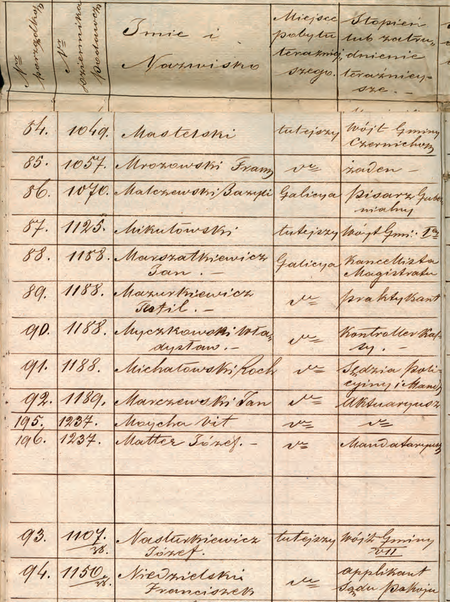 Nro porządkowe
Nro dziennika podawczego
Imie i
Nazwisko
Miejsce
pobytu
teraźniej-
szego.
Stopień
lub zatru-
dnienie
teraźniej-
sze. -
84. 1049. Mastelski tutejszy Wójt Gminy
Czernichow
85. 1057. Mrozowski Franz dto żaden -
86. 1070. Malczewski Bazyli Galicya pisarz Gube
rnialny
87. 1125. Mikułowski tutejszy Wójt Gmi.
88. 1158. Marszałkiewicz Galicya Kancelista
Jan. - Magistratu
89. 1188. Mazurkiewicz dto praktykant
Teofil. -
90. 1188. Myczkowski Wła- dto Kontroller Kas-
dysław. - sy. -
91. 1188. Michałowski Roch dto Sędzia poli-
cyjny i
92. 1189. Marczewski Jan dto Aktuaryusz
195. 1237. Moycha Vit dto dto
196. 1237. Matter Józef. - dto Mandataryusz
93. 1107. Nasturkiewicz tutejszy Wójt Gminy
Józef. VII
94. 1150. Niedzielski dto applikant
Franciszek Sądu pokoju